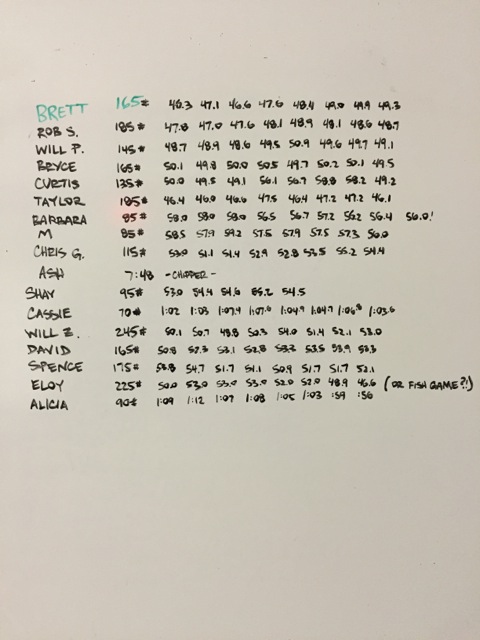 BRETT 165# 46.3 47.1 46.6 47.6 48.4 49.0 49.9 49.3
ROB S. 185# 47.8 47.0 47.6 48.1 48.9 48.1 48.6 48.7
WILL P. 145# 48.7 48.9 48.6 49.5 50.9 49.6 49.7 49.1
BRYCE 165# 50.1 49.8 50.0 50.5 49.7 50.2 50.1 49.5
CURTIS 135# 50.0 49.5 49.1 56.1 56.7 58.8 58.2 49.2
TAYLOR 185# 46.4 46.0 46.6 47.5 46.4 47.2 47.2 46.1
BARBARA 85# 58.0 58.0 58.0 56.5 56.7 57.2 56.2 56.4 56.0!
M 85# 58.5 57.9 59.2 57.5 57.9 57.5 57.3 56.0
CHRIS G. 115# 53.0 51.1 51.4 52.9 52.8 53.5 55.2 54.4
ASH 7:48 -CHIPPER-
SHAY 95# 53.0 54.4 54.6 55.2 54.5
CASSIE 70# 1:02 1:03 1:07.9 1:07.6 1:04.9 1:04.7 1:06.8 1:03.6
WILL Z. 245# 50.1 50.7 49.8 50.3 54.0 51.4 52.1 53.0
DAVID 165# 50.8 52.3 53.1 52.8 53.2 53.5 53.9 52.3
SPENCE 175# 54.7 51.7 51.1 50.9 51.7 51.7 52.1
ELOY 225# 50.0 53.0 53.0 53.0 52.0 52.0 48.9 46.6 (OR FISH GAME?!)
ALICIA 90# 1:09 1:12 1:07 1:08 1:05 1:03 :59 :56